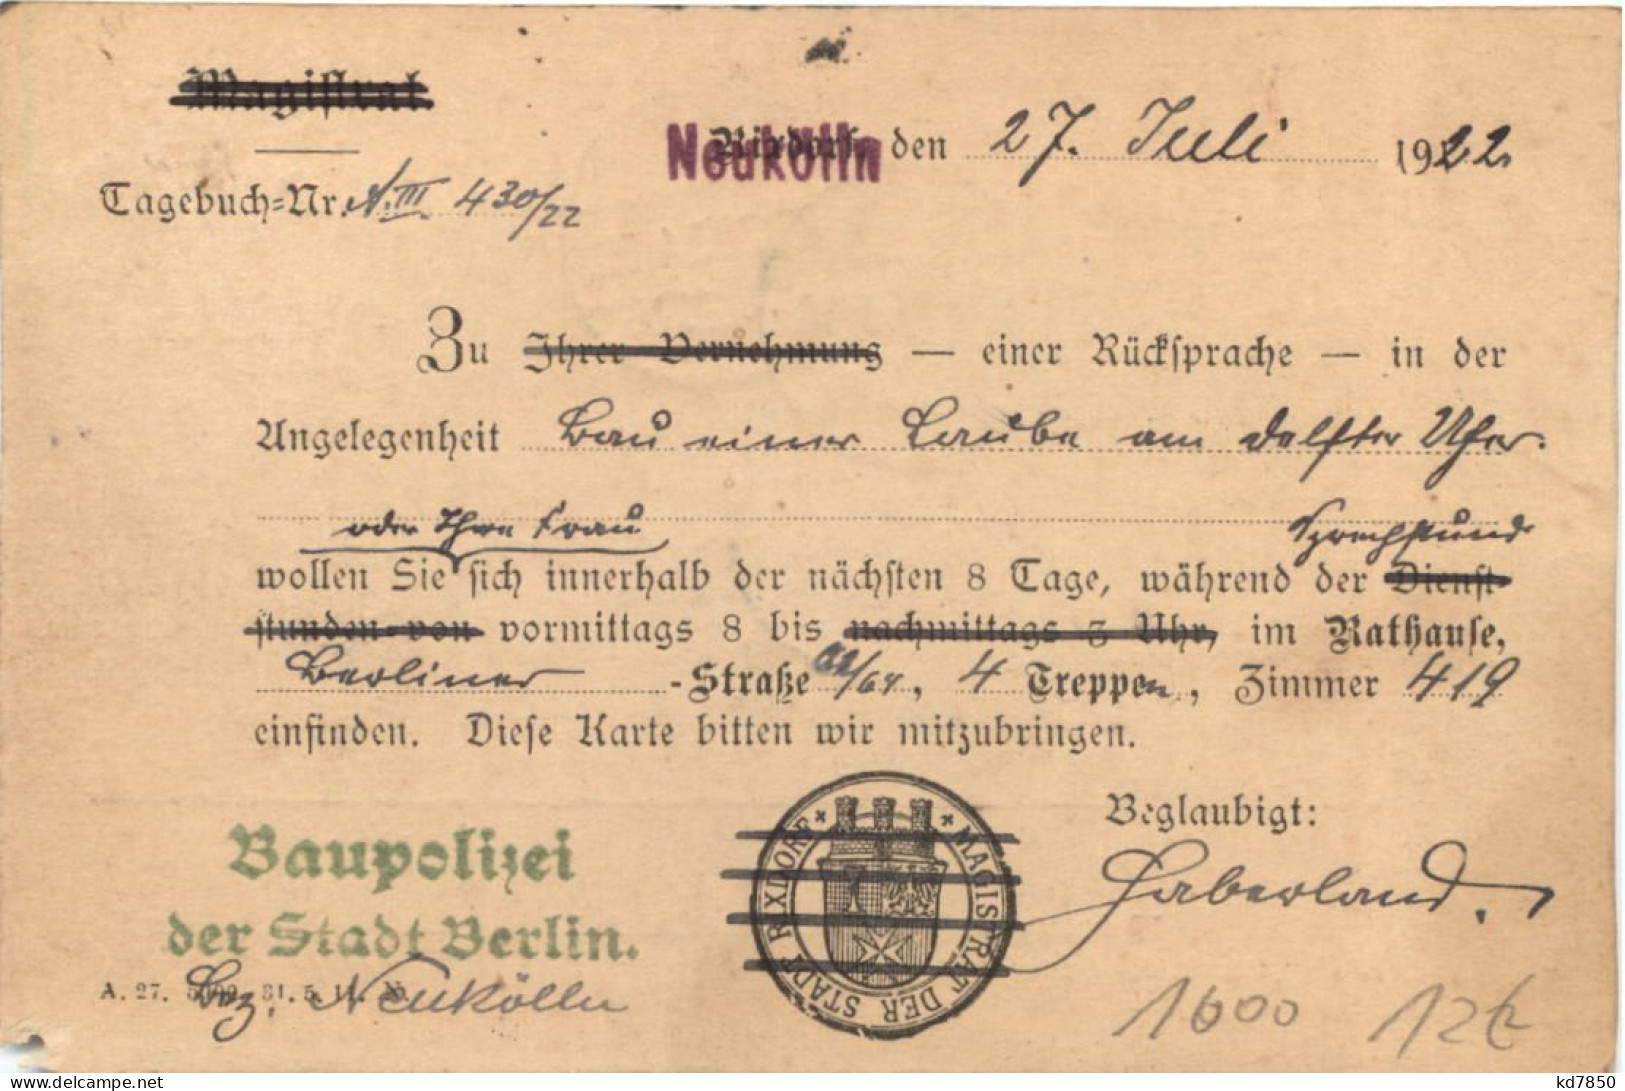 Magistrat.
Neukölln den 27. Juli 1922.
Tagebuch=Nr. A.III 430/22
Zu Ihrer Vernehmung — einer Rücksprache — in der
Angelegenheit Bau einer Laube am Delfter Ufer.
oder Ihre Frau Sprechstund
wollen Sie sich innerhalb der nächsten 8 Tage, während der Dienst-
stunden von vormittags 8 bis nachmittags 3 Uhr, im Rathause,
Berliner -Straße 62/64, 4 Treppen, Zimmer 419
einfinden. Diese Karte bitten wir mitzubringen.
Beglaubigt:
Haberland.
MAGISTRAT DER STADT RIXDORF
Baupolizei
der Stadt Berlin.
Bez. Neukölln
A. 27. 5000. 31. 5. 11.
1600 12€
kd7850